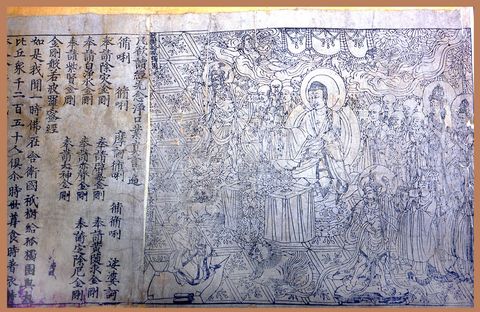 凡欲讀經先念淨口業真言遍
脩唎 脩唎 摩訶脩唎 脩脩唎 娑婆訶
奉請除灾金剛 奉請辟毒金剛 奉請黃隨求金剛
奉請白淨水金剛 奉請赤聲金剛 奉請定除厄金剛
奉請紫賢金剛 奉請大神金剛
金剛般若波羅蜜經
如是我聞一時佛在舍衛國祇樹給孤獨園與
比丘眾千二百五十人俱尒時世尊食時著衣